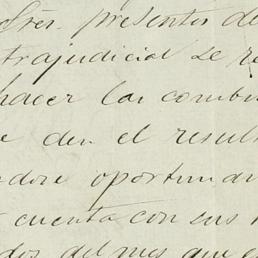 Sres. presentes de
trajudicial se re
hacer las combi
e den el result
dose oportuna
cuenta con sus
dos del mes que e